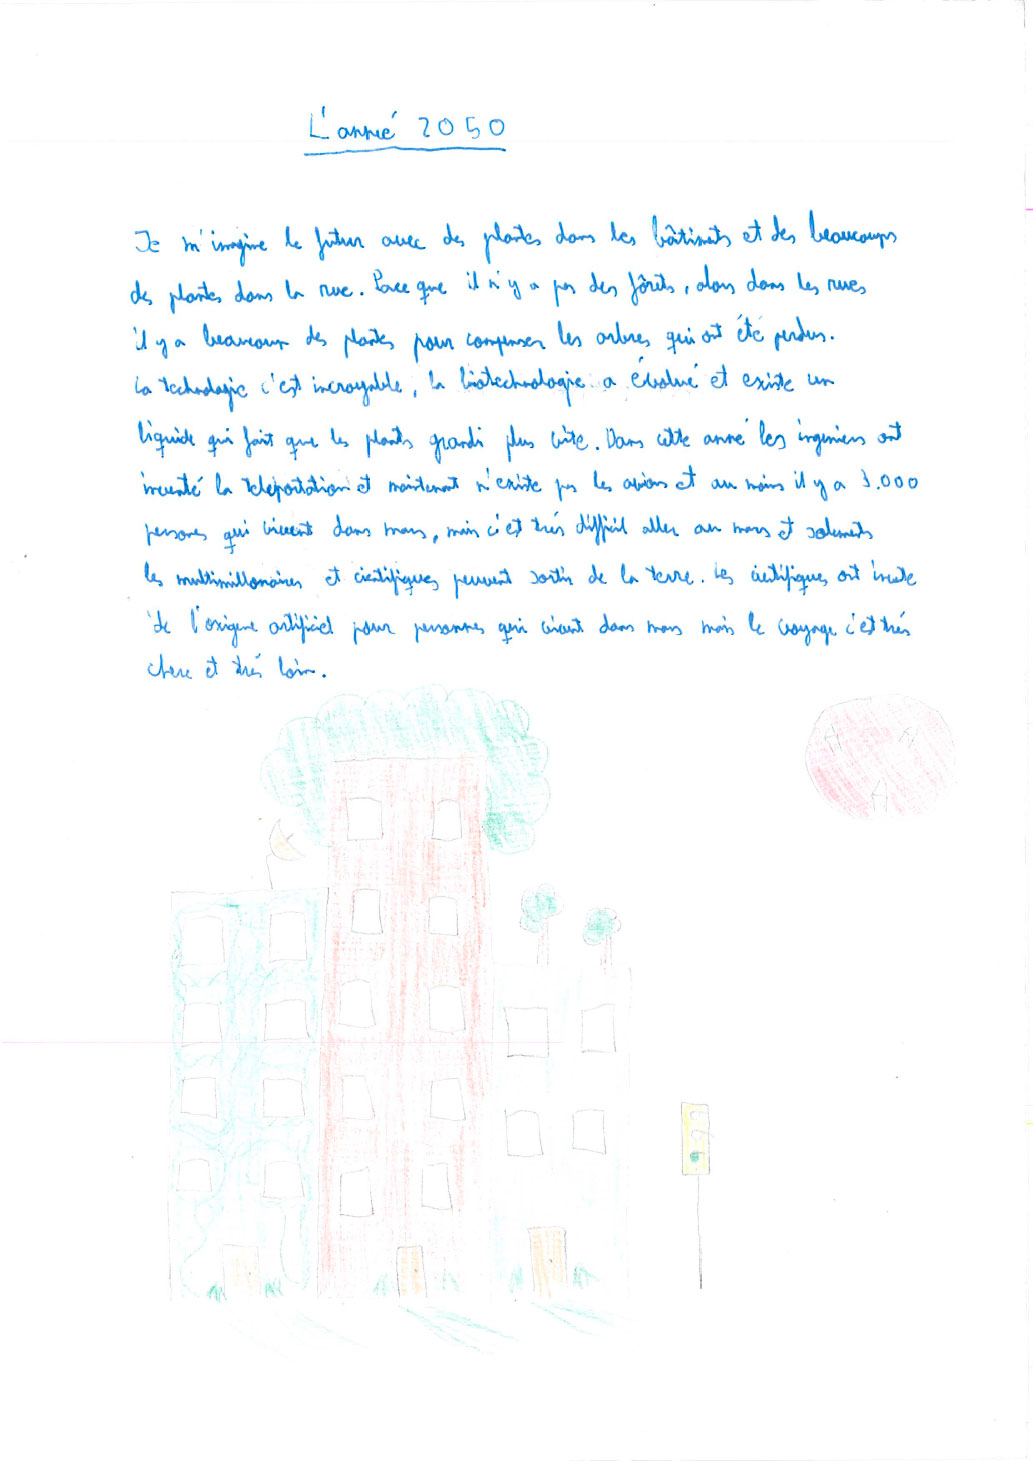 L'anneé 2050
Je m'imagine le futur avec des plantes dans les bâtiments et des beaucoups
des plantes dans la rue. Parce que il n'y a pas des fôrets, alors dans les rues
il y a beaucoup des plantes pour compenser les arbres qui ont été perdus.
La technologie c'est incroyable, la biotechnologie a évolué et existe un
liquide qui fait que les plants grandi plus vite. Dans cette anné les ingeniers ont
inventé la teleportation et maintenant n'existe pas les avions et au moins il y a 3.000
persones qui vivent dans mars, mais c'est trés difficil aller au mars et solements
les multimillonaires et cientifiques peuvent sortir de la terre. Les cientifiques ont invente
de l'oxigene artificiel pour personnes qui vivent dans mars mais le voyage c'est trés
chere et trés loin.